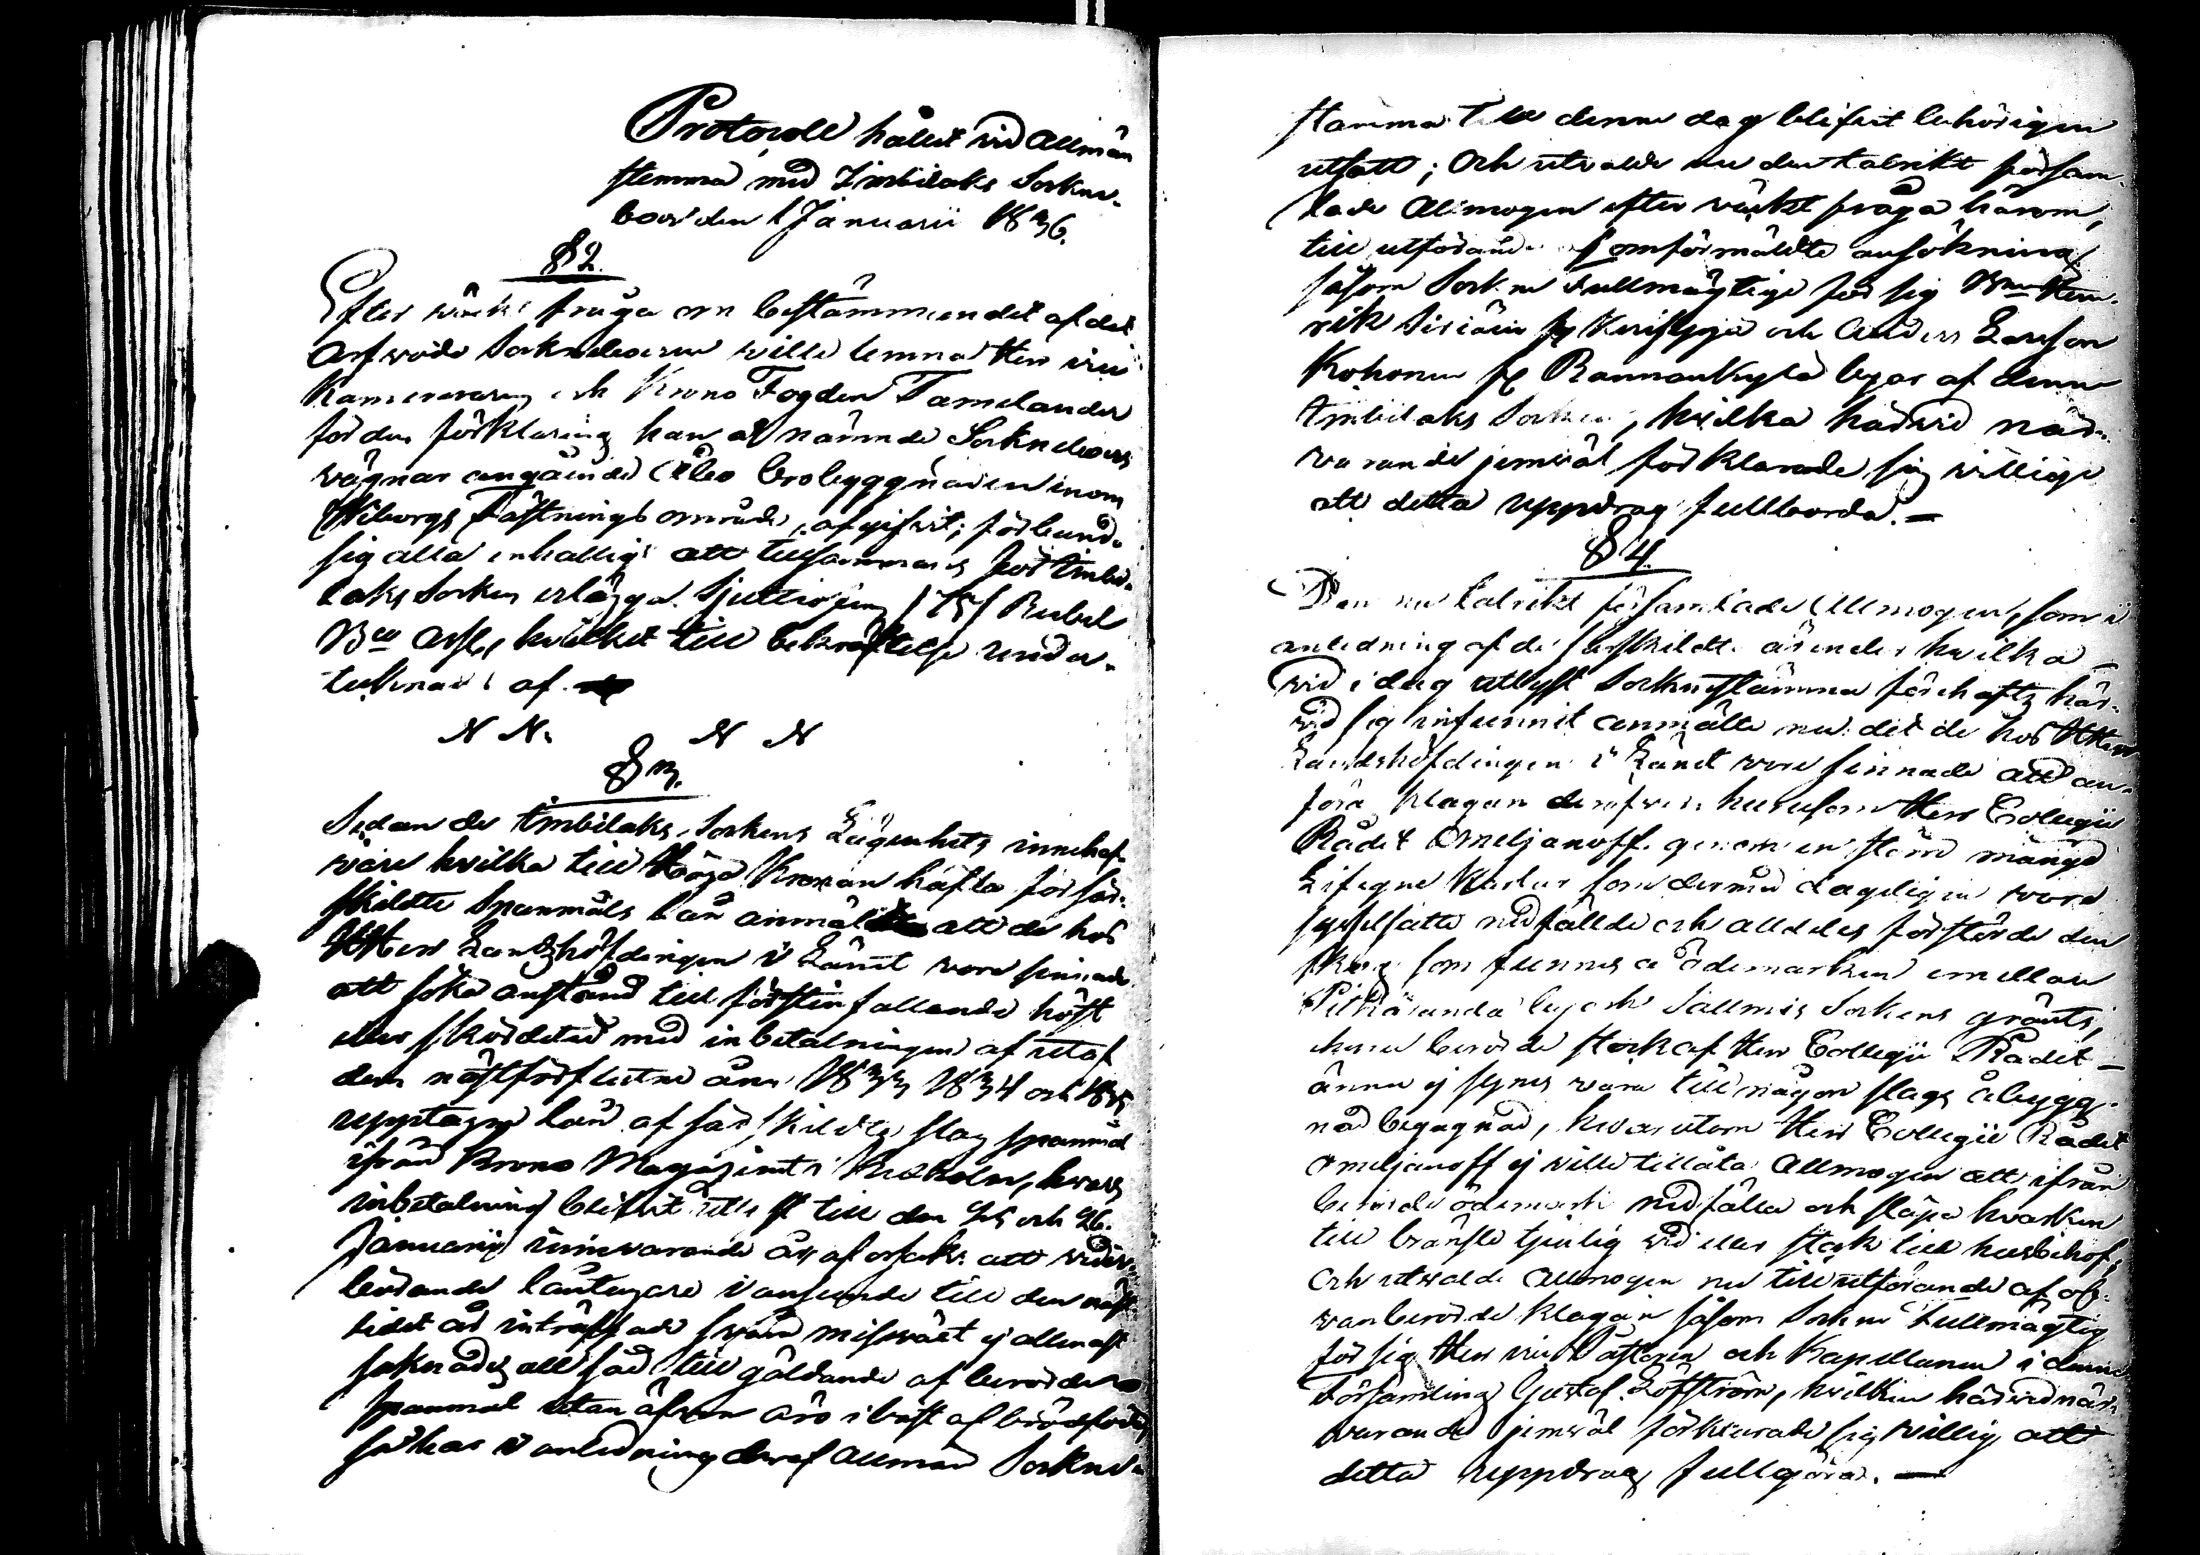 Protocoll hållit vid allmän
stemma med Imbilaks Sockne-
boer den 1 Januarii 1836.
§ 2.
Efter väckt fråga om bestämmandet af det
arfvode Sockneboerne ville lemna Herr
Kamereraren och Krono Fogden Tamelander
för den förklaring han å nämnde Socknebors
vägnar angående brobyggnaden inom
Wiborgs Fästnings område, afgifvit; förbundo
sig alla enhälligt att tillsammans för Imbi-
laks Socken erlägga Sjuttiofem /75/ Rubel
Bco Ass., hvilket till bekräftelse under-
tecknades af
N N. N N
§ 3.
Sedan de Imbilaks Sockens Lägenhets innehaf-
vare hvilka till Höga Kronan häfta för sär-
skildte Spanmåls lån anmält att de hos
Herr Landshöfdingen i Länet vore sinnade
att söka anstånd till först infallande höst
eller skördetid med inbetalningen af utaf
dem nästförflutne åren 1833 1834 och 1835
upptagne lån af särskildta slag spanmål
ifrån Krono Magazinet i, hvars
inbetalning blifvit utsatt till den 25 och 26.
Januarii innevarande år af orsak att veder-
börande låntagare i anseende till den näst-
ledet år inträffade svåra missväxt ej allenast
sakna all säd till gäldande af berörde
spanmål utan äfven äro i brist af brödföda
så har i anledning deraf allmän Sockne-
stämma till denne dag blifvit behörigen
utsatt; Och utvalde nu den talrikt församm-
lade Allmogen efter väckt fråga härom,
till utförande af omförmäldte ansökning
såsom Sockne Fullmägtige för sig Bonden Hen-
rik Siviäin fr och Anders Larsson
Kohonen fr Rannankylä byar af denne
Imbilaks Socken, hvilka härvid när-
varande jemväl förklarade sig villige
att detta uppdrag fullborda. —
§ 4.
Den nu talrikt församlade Allmogen, som i
anledning af de särskildte ärender hvilka
vid i dag utlyst Socknestämma förehafts här-
vid sig infunnit anmälte nu det de hos Herr
Landshöfdingen i Länet vore sinnade att an-
föra klagan deröfver hurusom Herr Collegii
Rådet Omeljanoff genom en större mängd
Lifegne Karlar som dermed dageligen vore
sysselsatte nedfällde och alldeles förstörde den
skog som funnes å ödemarken emellan
Pitkäranda by och Sallmis Sockens gränts,
ehuru berörde stock af Herr Collegii Rådet
ännu ej synes vara till någon slags åbygg-
nad begagnad, hvarutom Herr Collegii Rådet
Omeljanoff ej ville tillåta Allmogen att ifrån
berörde ödemark nedfälla och släpa hvarken
till bränsle tjenlig ved eller stock till husbehof,
och utvalde Allmogen nu till utförande af of-
vanberörde klagan såsom Sockne Fullmägtig
för sig Herr vice Pastoren och Kapellanen i denne
Församling Gustaf Löfström, hvilken härvid när-
varande jemväl förklarade sig villig att
detta uppdrag fullgöra. —